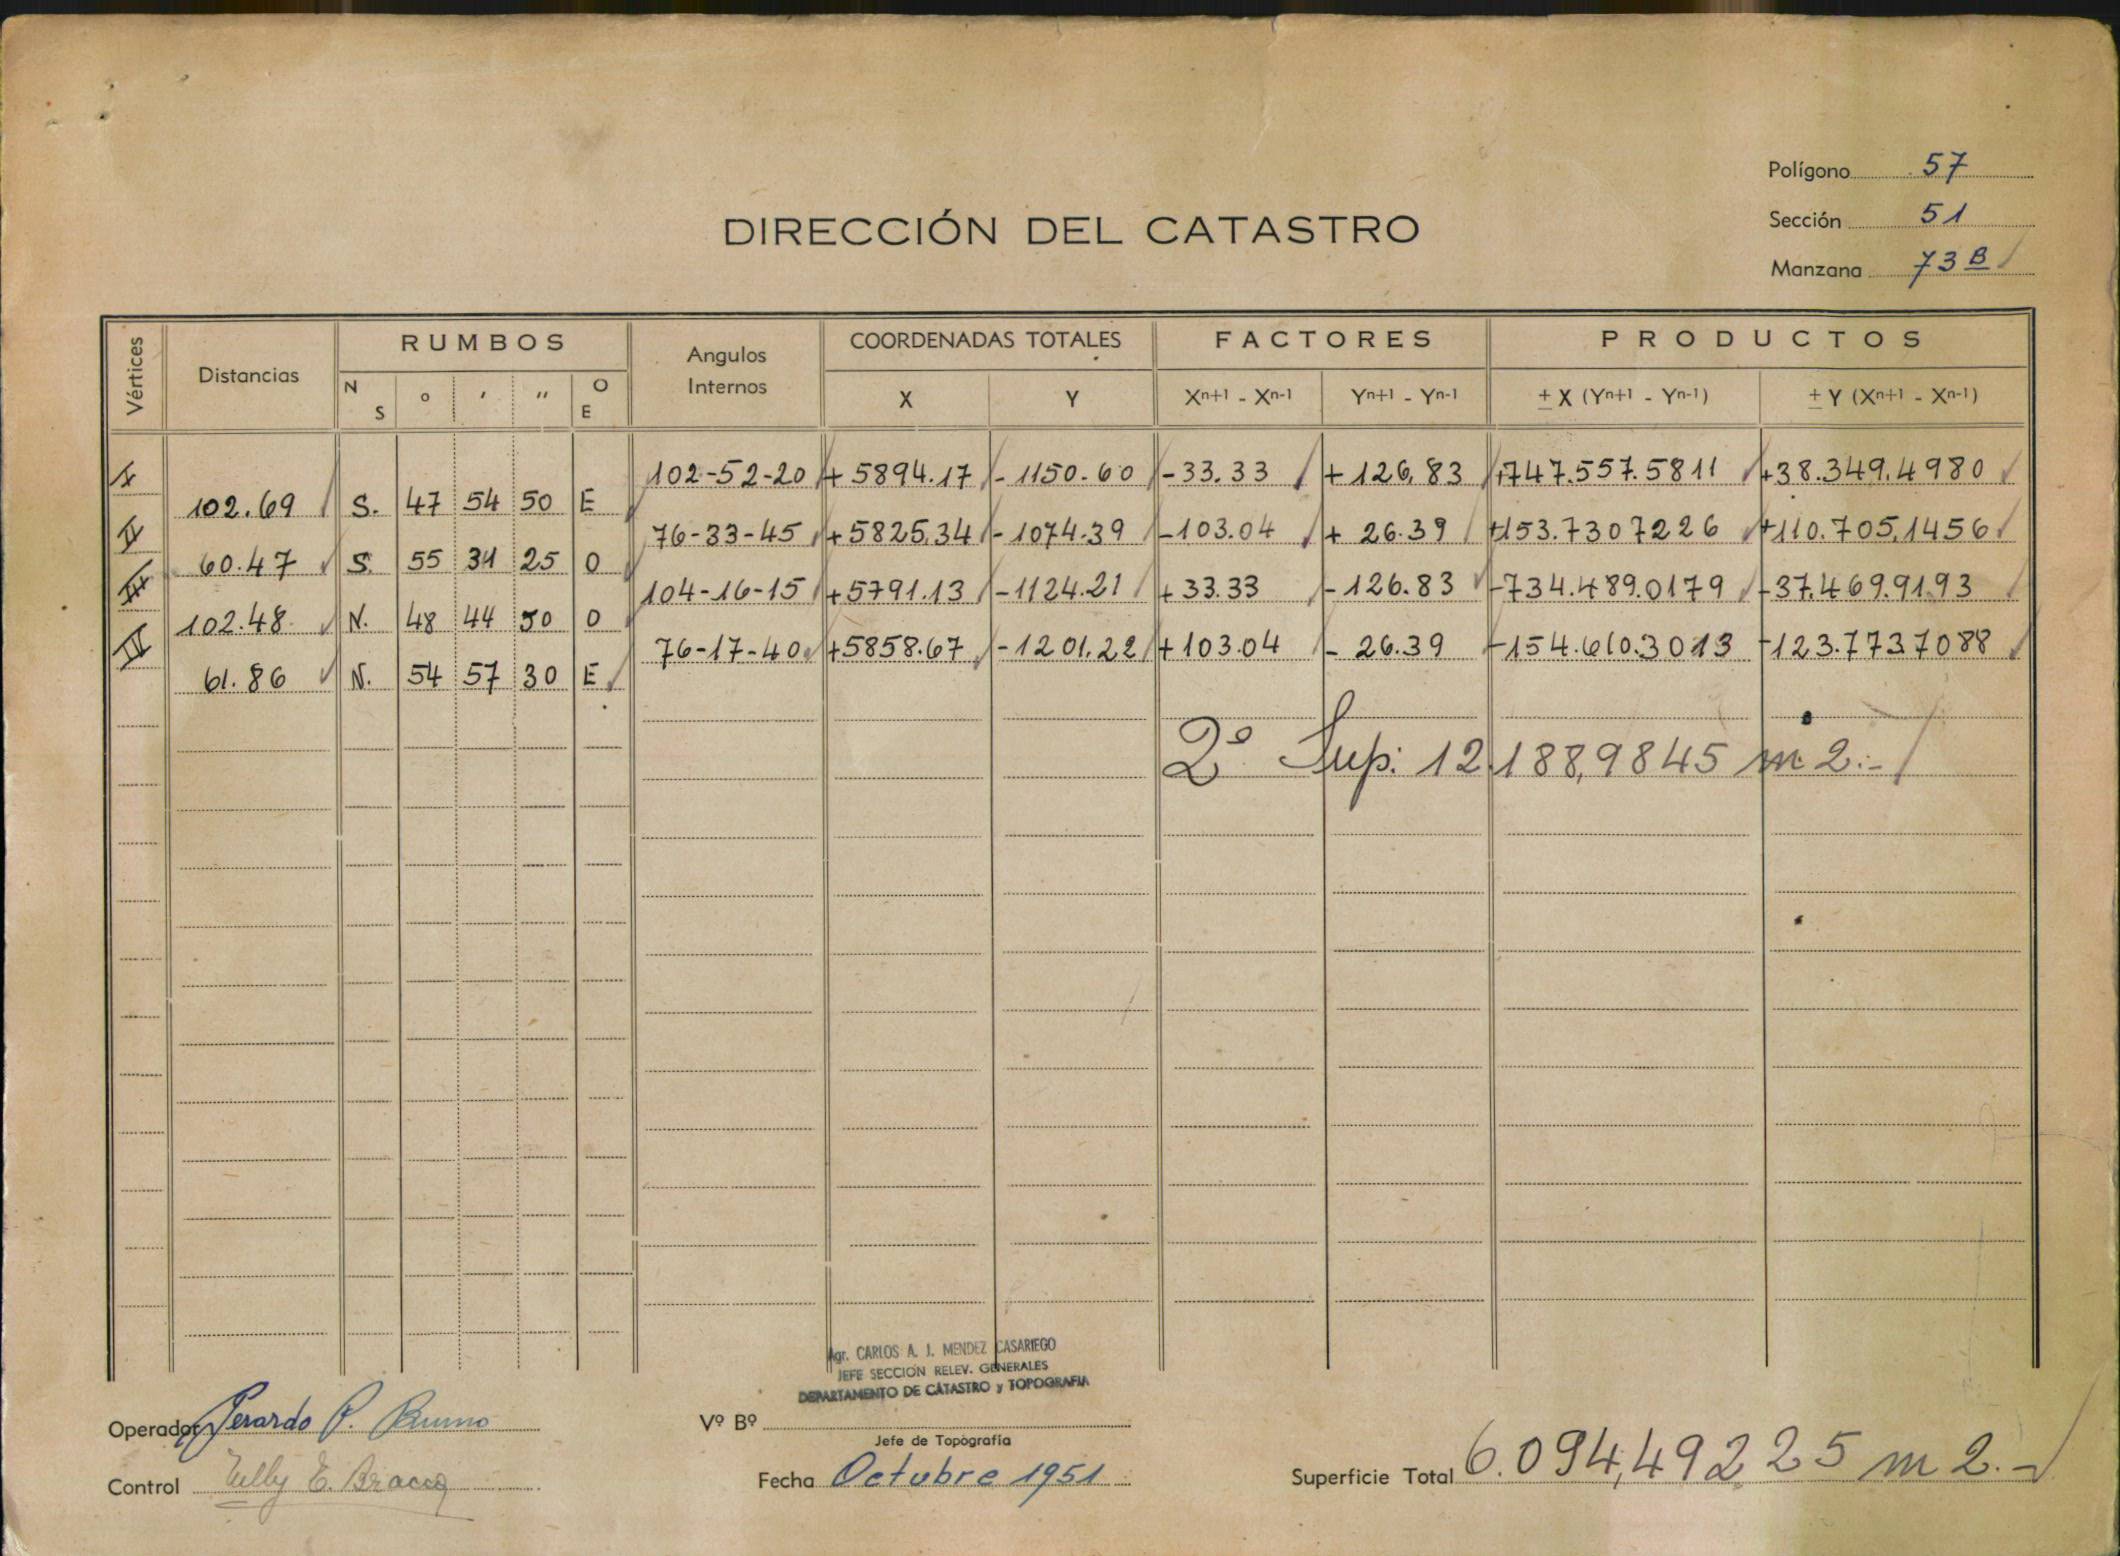 Polígono 57
Sección 51
Manzana 73 B
DIRECCIÓN DEL CATASTRO
Vértices Distancias RUMBOS Angulos Internos COORDENADAS TOTALES FACTORES PRODUCTOS
N S ° ' " O E X Y Xn+1 - Xn-1 Yn+1 - Yn-1 ± X (Yn+1 - Yn-1) ± Y (Xn+1 - Xn-1)
I 102-52-20 +5894.17 -1150.60 -33.33 +126,83 +747.557.5811 +38.349,4980
102.69 S. 47 54 50 E
II 76-33-45 +5825,34 -1074.39 -103.04 + 26.39 +153.7307226 +110.705,1456
60.47 S. 55 31 25 O
III 104-16-15 +5791.13 -1124.21 +33.33 -126.83 -734.489.0179 -37.469.9193
102.48 N. 48 44 50 O
IV 76-17-40 +5858.67 -1201.22 +103.04 - 26.39 -154.610.3013 -123.7737088
61.86 N. 54 57 30 E
2º Sup: 12.188,9845 m2.-
Agr. CARLOS A. J. MENDEZ CASARIEGO
JEFE SECCION RELEV. GENERALES
DEPARTAMENTO DE CATASTRO y TOPOGRAFIA
Operador Gerardo P. Bruno
Vº Bº
Jefe de Topografía
Control E. Bracco
Fecha Octubre 1951
Superficie Total 6.094,49225 m2.-